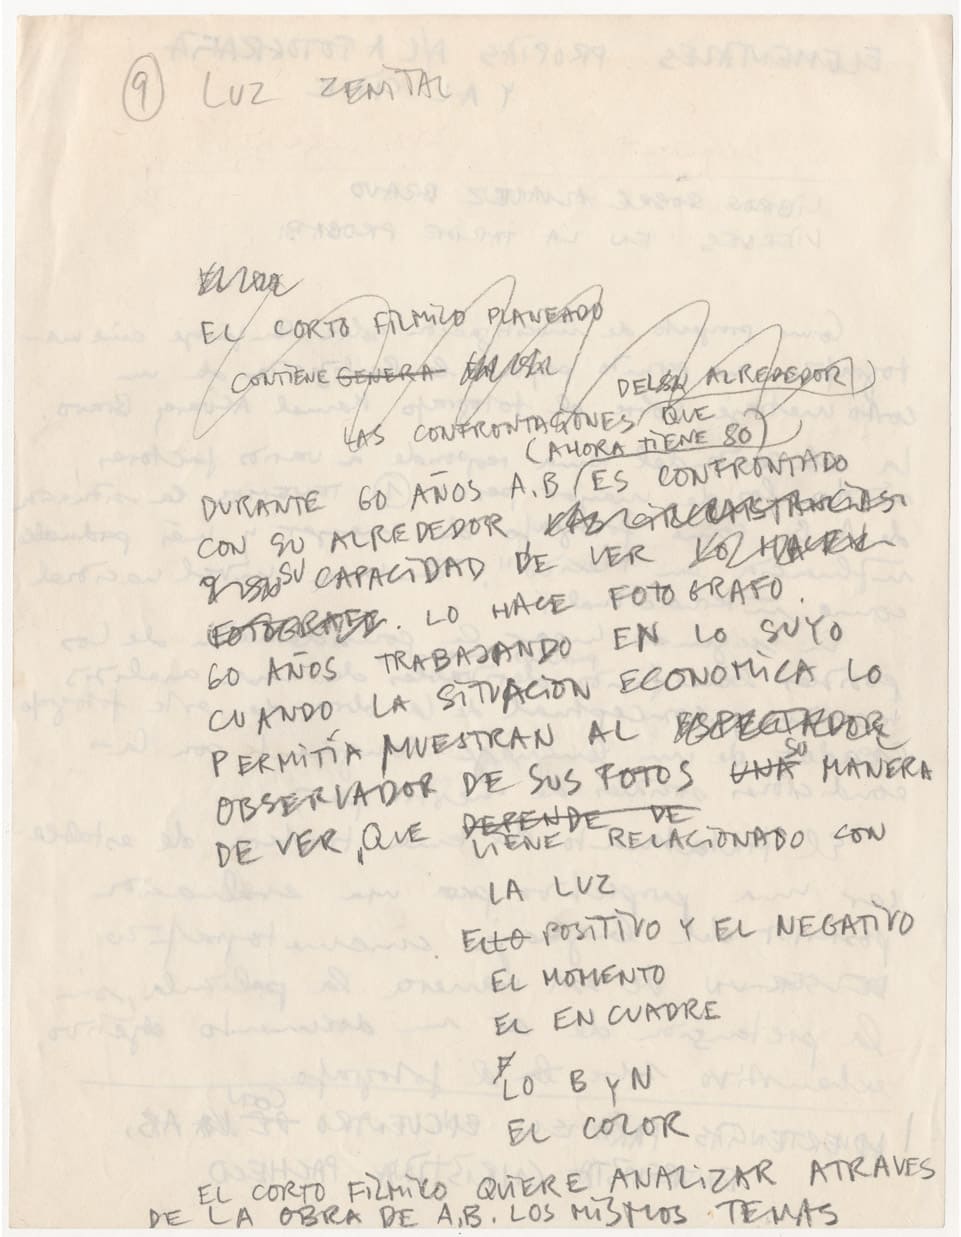 9 LUZ ZENITAL
EL CORTO FILMICO PLANEADO
CONTIENE GENERA
DEL ALREDEDOR
LAS CONFRONTACIONES QUE
(AHORA TIENE 80)
DURANTE 60 AÑOS A.B ES CONFRONTADO
CON SU ALREDEDOR LAS CIRCUNSTANCIAS.
SU CAPACIDAD DE VER LOZ HACEN
FOTOGRAFO. LO HACE FOTOGRAFO.
60 AÑOS TRABAJANDO EN LO SUYO
CUANDO LA SITUACION ECONOMICA LO
PERMITÍA MUESTRAN AL ESPECTADOR
OBSERVADOR DE SUS FOTOS UNA SU MANERA
DE VER, QUE DEPENDE DE
TIENE RELACIONADO CON
LA LUZ
EL LO POSITIVO Y EL NEGATIVO
EL MOMENTO
EL ENCUADRE
LO B Y N
EL COLOR
EL CORTO FILMICO QUIERE ANALIZAR ATRAVES
DE LA OBRA DE A.B. LOS MISMOS TEMAS